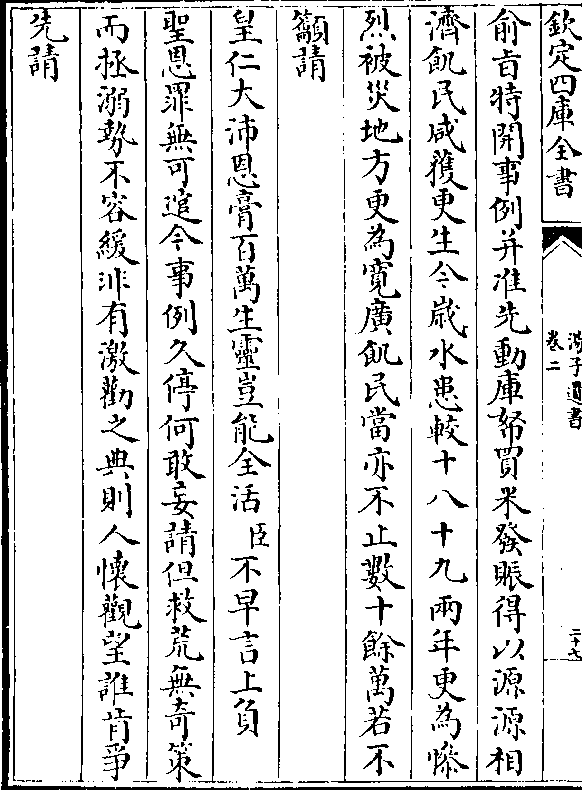 欽定四庫全書
卷二
俞旨特開事例并准先動庫帑買米發賑得以源源相
濟飢民咸獲更生今歲水患較十八十九兩年更為慘
烈被災地方更為寛廣飢民當亦不止數十餘萬若不
籲請
皇仁大沛恩膏百萬生靈豈能全活臣不早言上負
聖恩罪無可逭今事例久停何敢妄請但救荒無奇策
而拯溺勢不容緩非有激勸之典則人懷觀望誰肯爭
先請